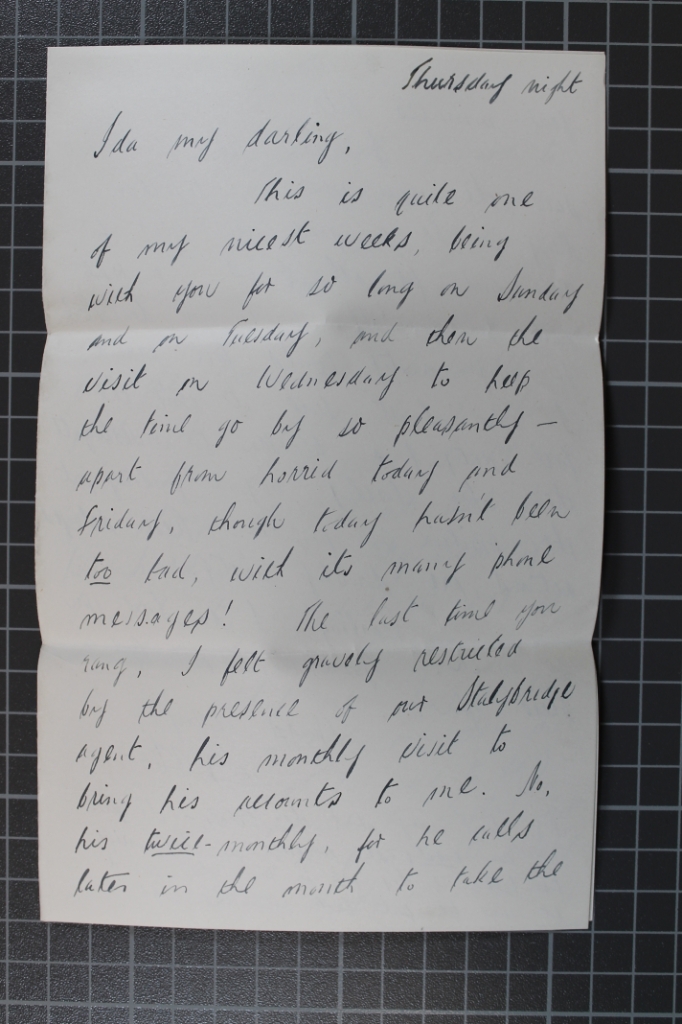 Thursday night
Ida my darling,
This is quite one
of my nicest weeks, being
with you for so long on Sunday
and on Tuesday, and then the
visit on Wednesday to help
the time go by so pleasantly —
apart from horrid today and
Friday, though today hasn't been
too bad, with its many 'phone
messages! The last time you
rang, I felt gravely restricted
by the presence of our Stalybridge
agent, his monthly visit to
bring his accounts to me. No,
his twice-monthly, for he calls
later in the month to take the